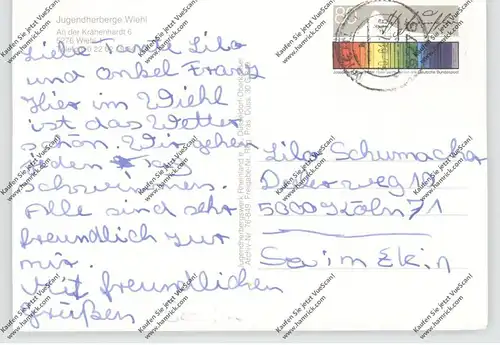 Jugendherberge Wiehl
An der Krähenhardt 6
5276 Wiehl
Liebe Tante Lilo
und onkel Franz
Hier im Wiehl
ist das Wetter
schön. Wir gehen
jeden tag
schwimmen
Alle sind sehr
freundlich zur
mir.
Mit freundlichen
grüßen
Lilo Schumacher
5000 Köln 71
Deutsche Bundespost
Kaufen Sie jetzt VueScan!
www.hamrick.com